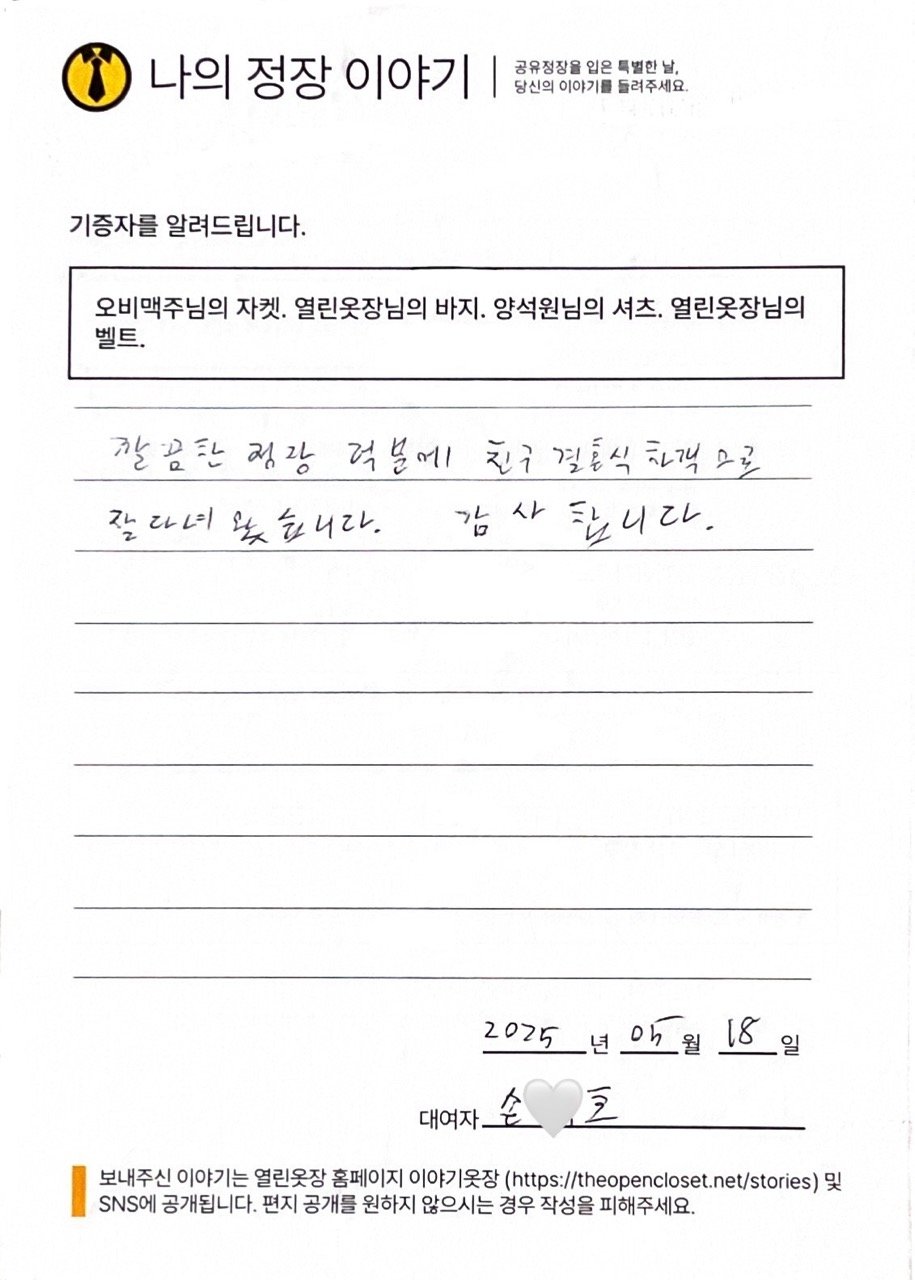 나의 정장 이야기
공유정장을 입은 특별한 날,
당신의 이야기를 들려주세요.
기증자를 알려드립니다.
오비맥주님의 자켓. 열린옷장님의 바지. 양석원님의 셔츠. 열린옷장님의
벨트.
깔끔한 정장 덕분에 친구 결혼식 하객으로
잘 다녀 왔습니다. 감사 합니다.
2025 년 05 월 18 일
대여자 손 호
보내주신 이야기는 열린옷장 홈페이지 이야기옷장 (https://theopencloset.net/stories) 및
SNS에 공개됩니다. 편지 공개를 원하지 않으시는 경우 작성을 피해주세요.